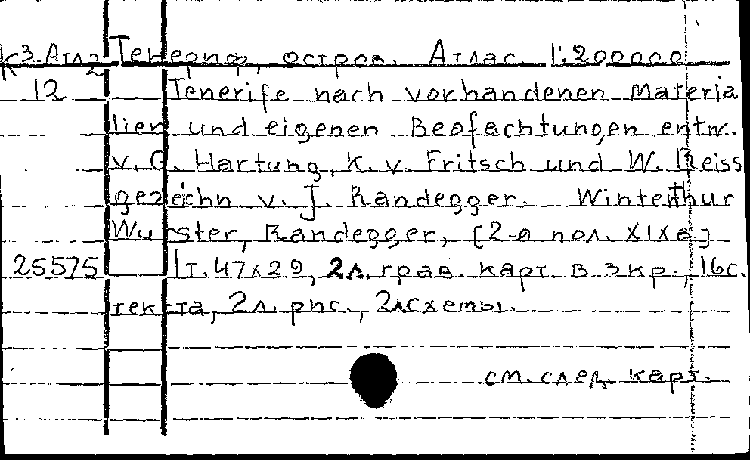 К3-Атл2 Тенериф, остров. Атлас 1:200000
12 Tenerife nach vorhandenen Materia
lien und eigenen Beofachtungen entw.
v. G. Hartung, K. v. Fritsch und W. Reiss
gezeichn v. J. Randegger. Winterthur
Wurster, Randegger, [2-я пол. XIXв]
25575 1т. 47х29, 2л. грав. карт. в 3 кр., 16с.
текста, 2л. рис., 2лсхемы.
см. след. карт.